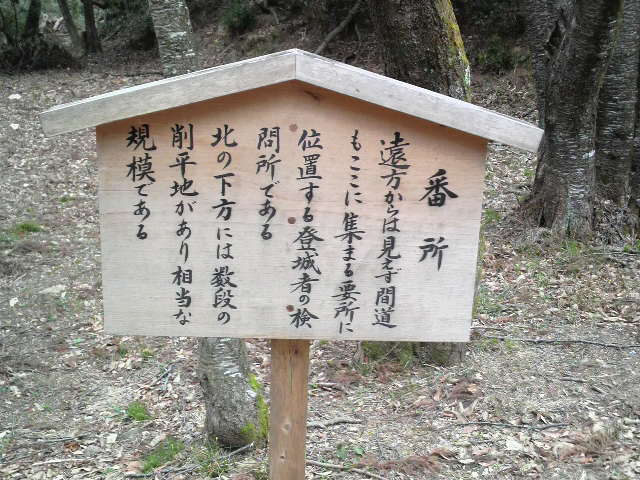 番所
遠方からは見えず間道
もここに集まる要所に
位置する登城者の検
問所である
北の下方には数段の
削平地があり相当な
規模である